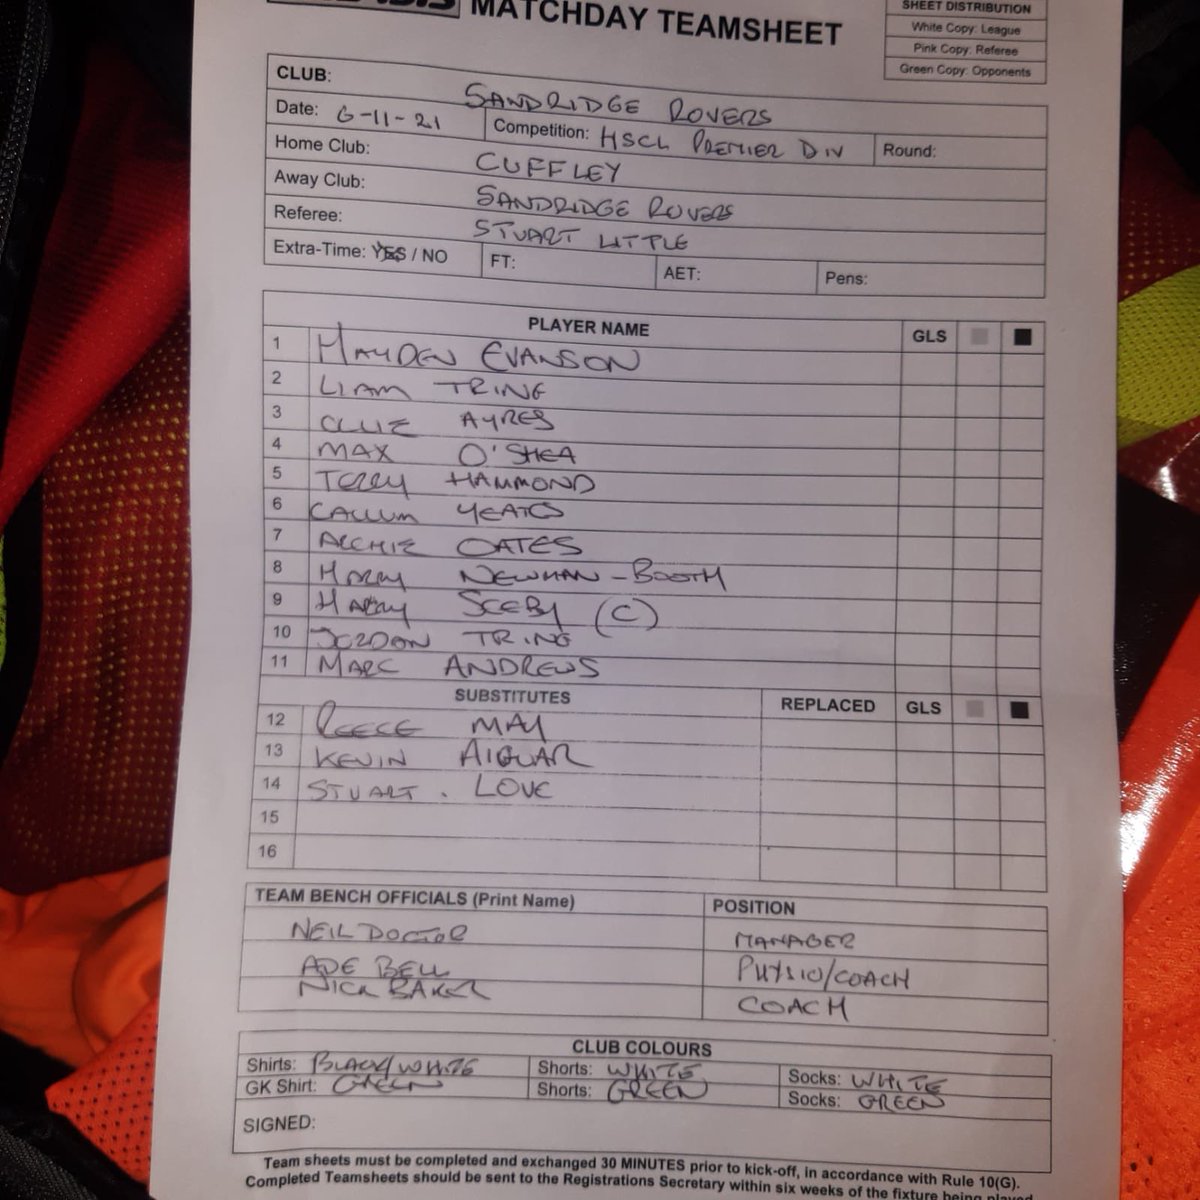 MATCHDAY TEAMSHEET
SHEET DISTRIBUTION
White Copy: League
Pink Copy: Referee
Green Copy: Opponents
CLUB: SANDRIDGE ROVERS
Date: 6-11-21 Competition: HSCL PREMIER DIV Round:
Home Club: CUFFLEY
Away Club: SANDRIDGE ROVERS
Referee: STUART LITTLE
Extra-Time: YES / NO FT: AET: Pens:
PLAYER NAME GLS
1 HAYDEN EVANSON
2 LIAM TRING
3 CLIVE AYRES
4 MAX O'SHEA
5 TERRY HAMMOND
6 CALLUM YEATES
7 ARCHIE OATES
8 HARRY NEWMAN-BOOTH
9 HARRY SCEBY (C)
10 JORDON TRING
11 MARC ANDREWS
SUBSTITUTES REPLACED GLS
12 REECE MAY
13 KEVIN AIGUAR
14 STUART. LOVE
15
16
TEAM BENCH OFFICIALS (Print Name) POSITION
NEIL DOCTOR MANAGER
ADE BELL PHYSIO/COACH
NICK BAKER COACH
CLUB COLOURS
Shirts: BLACK/WHITE Shorts: WHITE Socks: WHITE
GK Shirt: GREEN Shorts: GREEN Socks: GREEN
SIGNED:
Team sheets must be completed and exchanged 30 MINUTES prior to kick-off, in accordance with Rule 10(G).
Completed Teamsheets should be sent to the Registrations Secretary within six weeks of the fixture being played